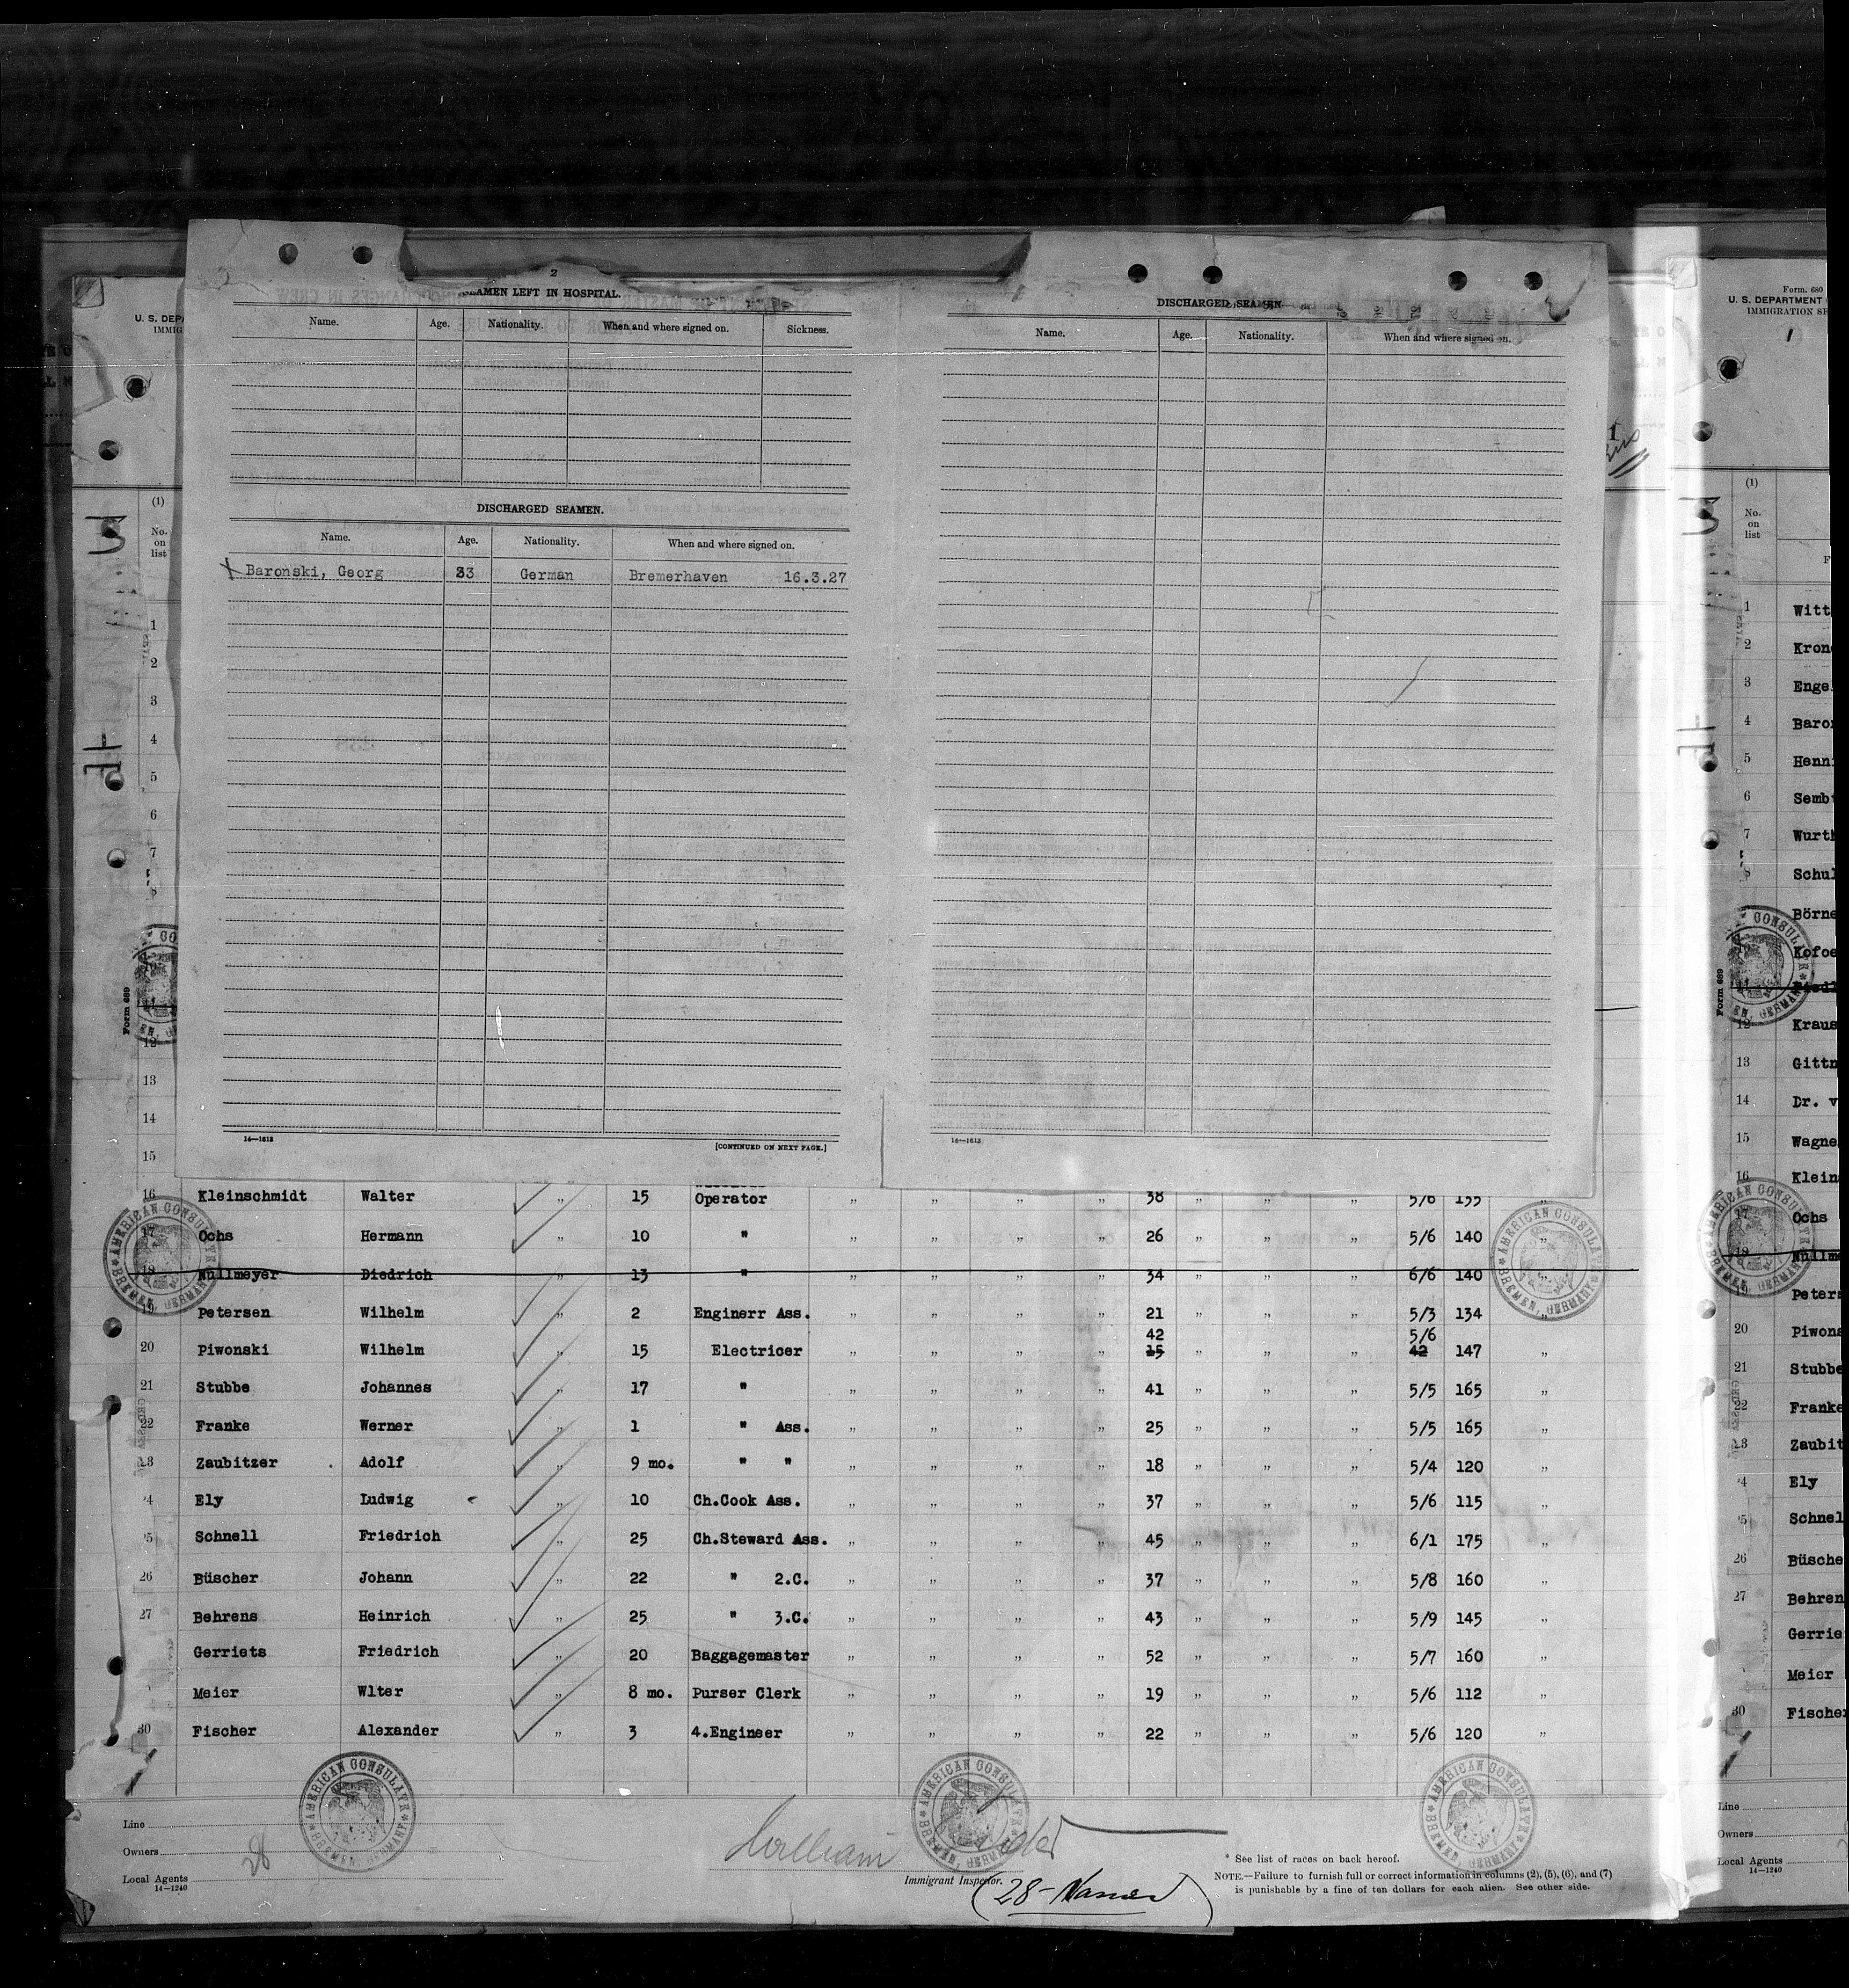 2
SEAMEN LEFT IN HOSPITAL.
Name. Age. Nationality. When and where signed on. Sickness.
DISCHARGED SEAMEN.
Name. Age. Nationality. When and where signed on.
Baronski, Georg 33 German Bremerhaven 16.3.27
14—1613
[CONTINUED ON NEXT PAGE.]
DISCHARGED SEAMEN.
Name. Age. Nationality. When and where signed on.
14—1613
U. S. DEPA
IMMIG
(1)
No. on list
1
2
3
4
5
6
7
8
Form 689
12
13
14
15
16 Kleinschmidt Walter „ 15 Operator „ „ „ „ 38 „ „ „ 5/6 155 „
17 Ochs Hermann „ 10 " „ „ „ „ 26 „ „ „ 5/6 140 „
18 Nullmeyer Diedrich „ 13 " „ „ „ „ 34 „ „ „ 6/6 140
19 Petersen Wilhelm „ 2 Enginerr Ass. „ „ „ „ 21 „ „ „ 5/3 134 „
42 5/6
20 Piwonski Wilhelm „ 15 Electricer „ „ „ „ 15 „ „ „ 42 147 „
21 Stubbe Johannes „ 17 " „ „ „ „ 41 „ „ „ 5/5 165 „
22 Franke Werner „ 1 " Ass. „ „ „ „ 25 „ „ „ 5/5 165 „
23 Zaubitzer Adolf „ 9 mo. " " „ „ „ „ 18 „ „ „ 5/4 120 „
4 Ely Ludwig „ 10 Ch.Cook Ass. „ „ „ „ 37 „ „ „ 5/6 115 „
5 Schnell Friedrich „ 25 Ch.Steward Ass. „ „ „ „ 45 „ „ „ 6/1 175 „
26 Büscher Johann „ 22 " 2.C. „ „ „ „ 37 „ „ „ 5/8 160 „
27 Behrens Heinrich „ 25 " 3.C. „ „ „ „ 43 „ „ „ 5/9 145 „
Gerriets Friedrich „ 20 Baggagemaster „ „ „ „ 52 „ „ „ 5/7 160 „
Meier Wlter „ 8 mo. Purser Clerk „ „ „ „ 19 „ „ „ 5/6 112 „
30 Fischer Alexander „ 3 4.Engineer „ „ „ „ 22 „ „ „ 5/6 120 „
AMERICAN CONSULATE
BREMEN, GERMANY
AMERICAN CONSULATE
BREMEN, GERMANY
AMERICAN CONSULATE
BREMEN, GERMANY
AMERICAN CONSULATE
BREMEN, GERMANY
AMERICAN CONSULATE
BREMEN, GERMANY
Line
Owners
Local Agents
14—1240
28
William
Immigrant Inspector.
(28-Names)
* See list of races on back hereof.
NOTE.—Failure to furnish full or correct information in columns (2), (5), (6), and (7)
is punishable by a fine of ten dollars for each alien. See other side.
Form. 680
U. S. DEPARTMENT
IMMIGRATION SE
1
(1)
No. on list
F
1 Witt
2 Krone
3 Enge
4 Baron
5 Henni
6 Sembt
7 Wurth
8 Schul
Börne
Kofoe
Form 689
12 Kraus
13 Gittn
14 Dr. v
15 Wagne
16 Klein
17 Ochs
18 Nullme
19 Peters
20 Piwons
21 Stubbe
22 Franke
23 Zaubit
4 Ely
5 Schnel
26 Büsche
27 Behren
Gerrie
Meier
30 Fische
Line
Owners
Local Agents
14—1240